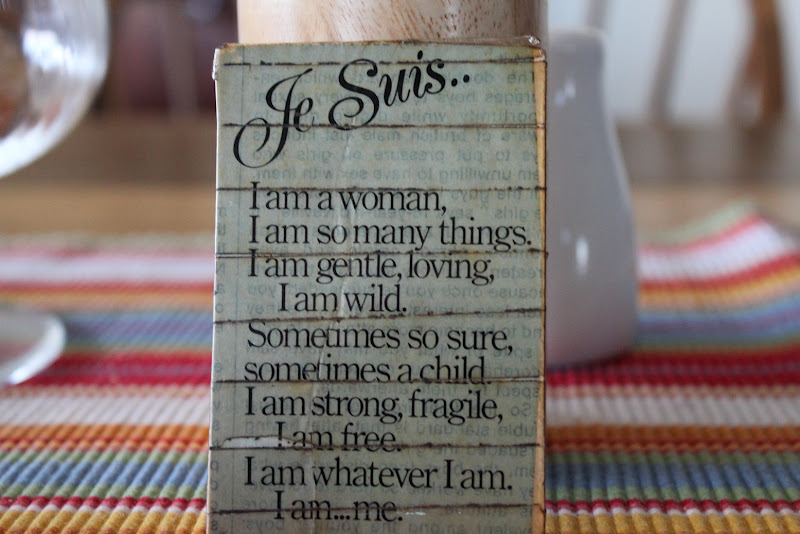 Je Suis..
I am a woman,
I am so many things.
I am gentle, loving,
I am wild.
Sometimes so sure,
sometimes a child.
I am strong, fragile,
I am free.
I am whatever I am.
I am...me.